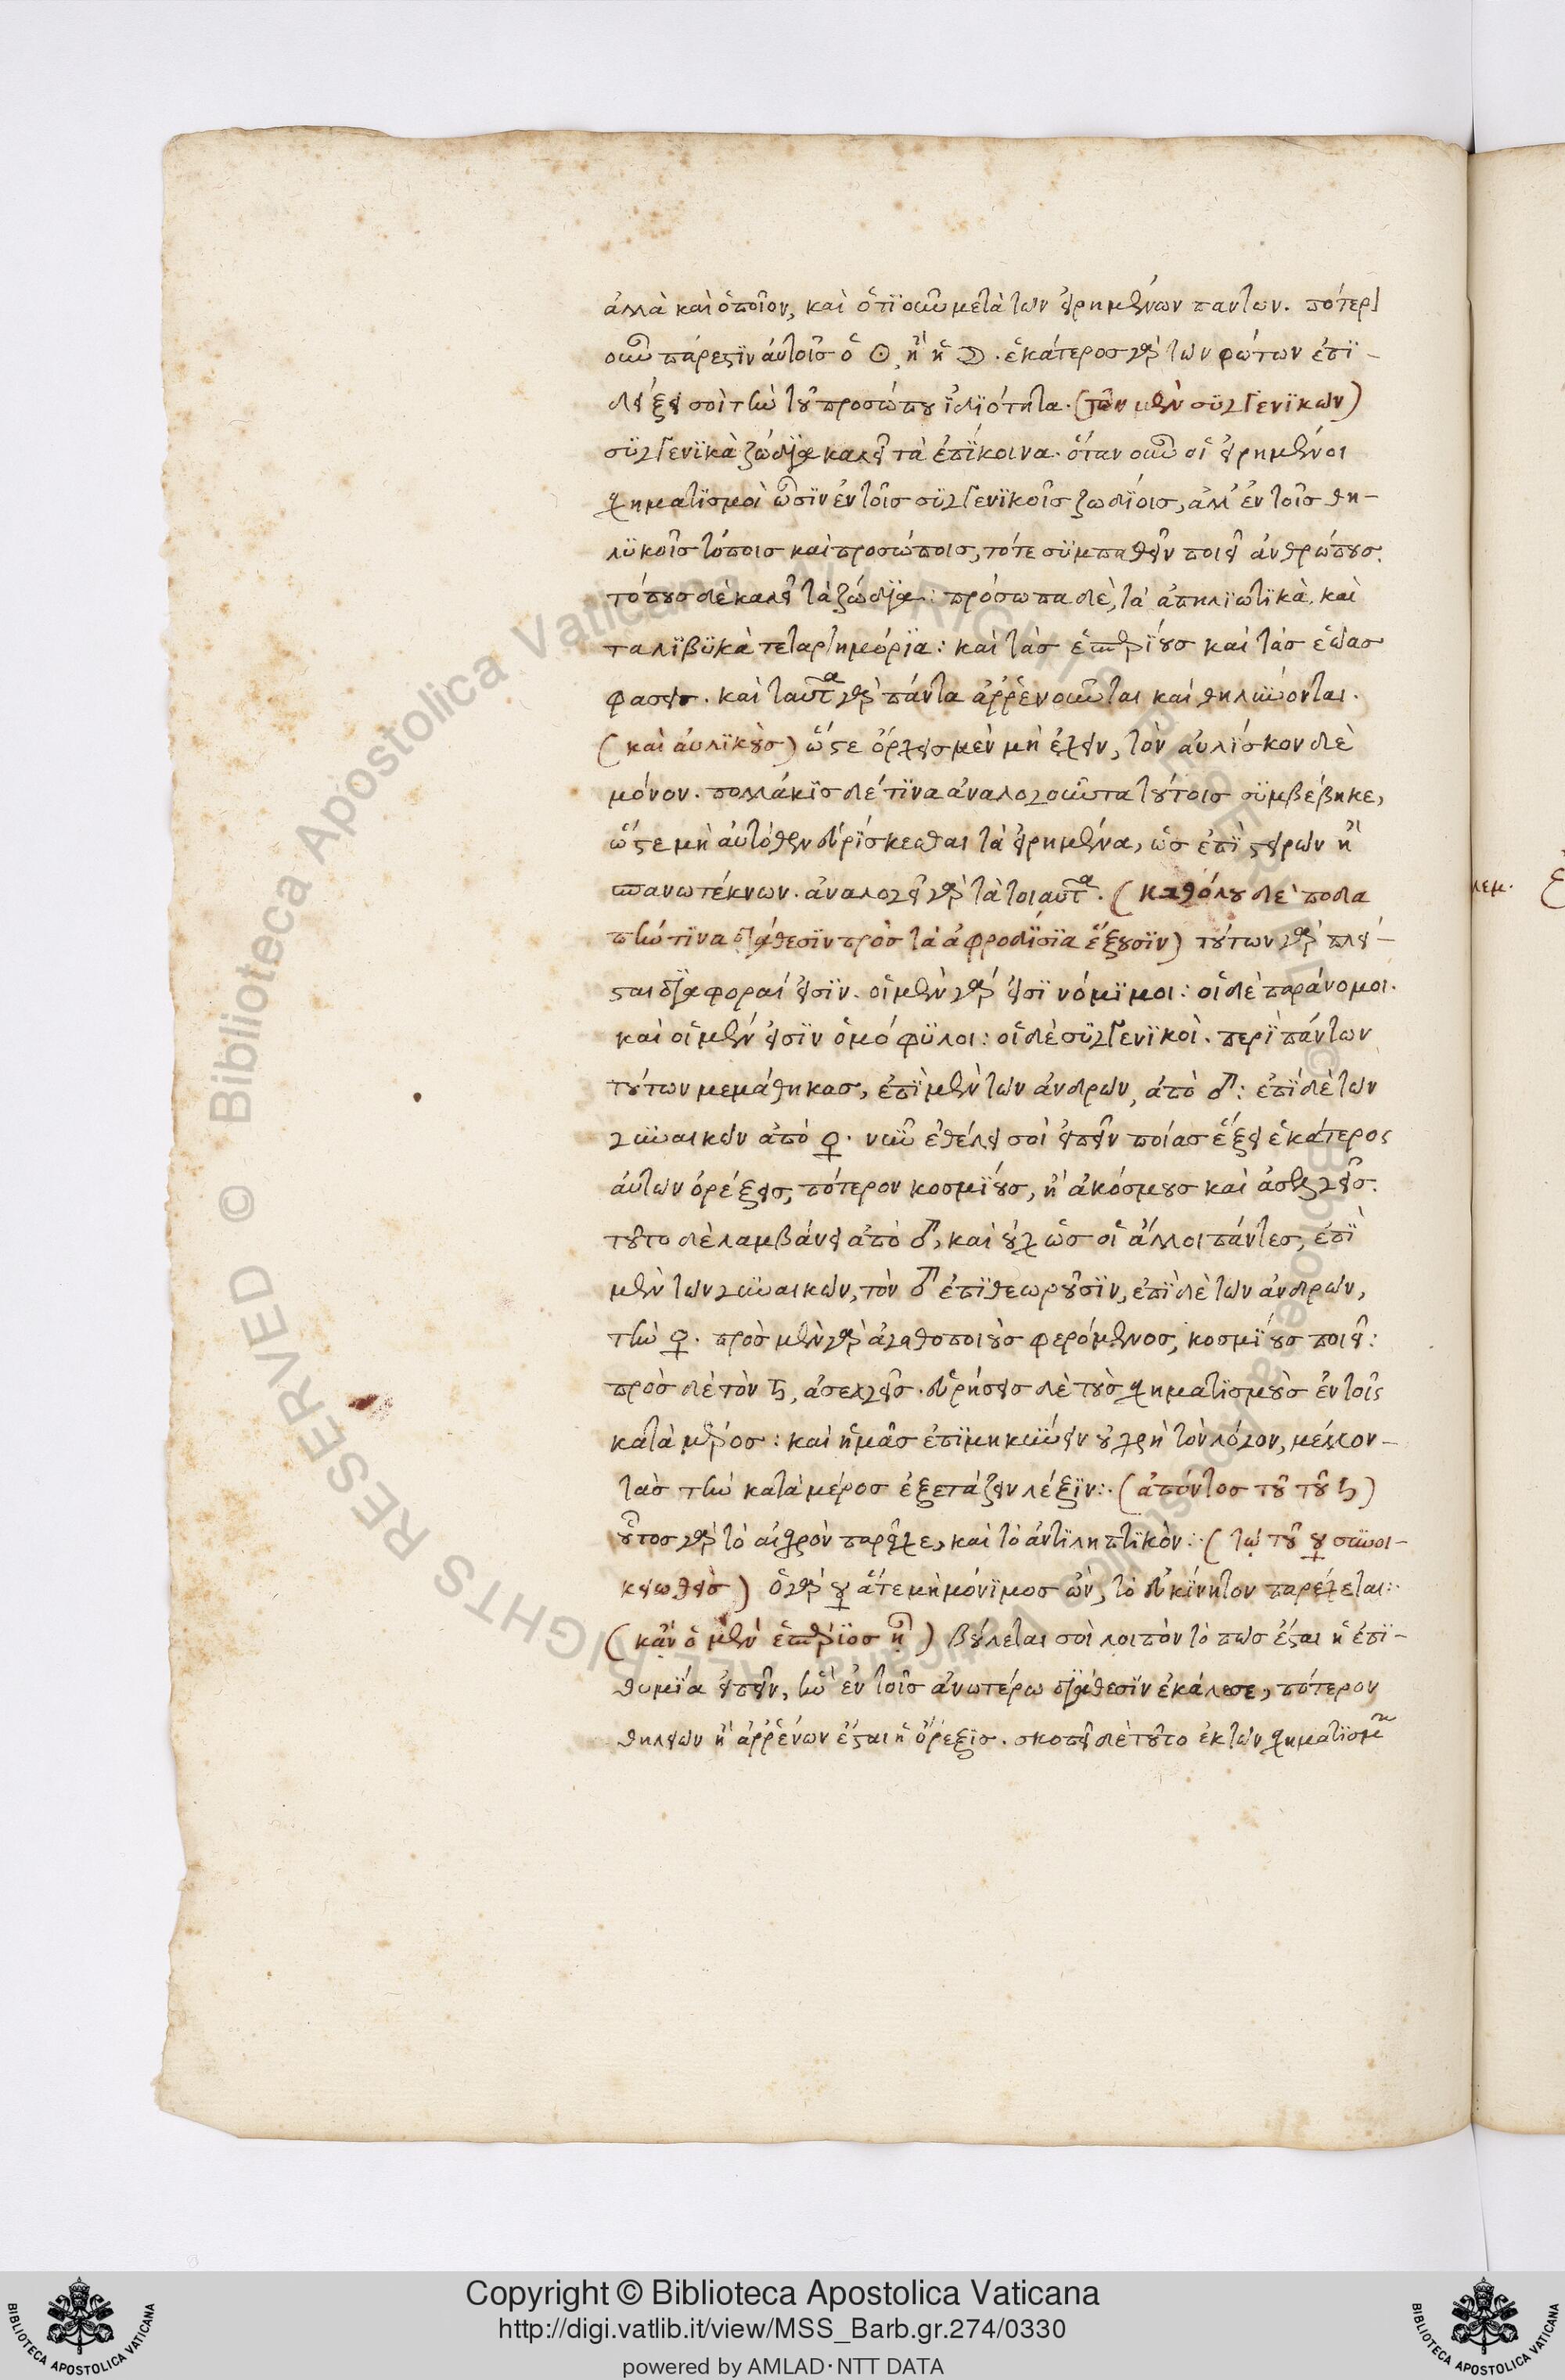 ἀλλὰ καὶ ὁποῖον, καὶ ὅτϊ οὖν μετὰ των εἰρημένων παντων. πότερον
οὖν πάρεστϊν ἀυτοῖσ ὁ ☉, ἢ ἡ ☽. ἑκάτεροσ γὰρ των φώτων ἐπϊ-
δείξει σοὶ τὴν τοῦ προσώπου ἰδϊότητα. (τῶν μὲν συγγενϊκων)
συγγενϊκὰ ζώδϊα καλεῖ τὰ ἐπϊκοινα. ὅταν οὖν οἱ εἰρημένοι
χηματϊσμοὶ ὦσϊν ἐν τοῖσ συγγενϊκοῖσ ζωδϊοισ, ἀλλ' ἐν τοῖσ θη-
λυκοῖσ τόποισ καὶ προσώποισ, τότε συμπαθεῖν ποιεῖ ἀνθρώπουσ.
τόπουσ δὲ καλεῖ τὰ ζώδϊα: πρόσωπα δὲ, τὰ ἀπηλϊωτϊκὰ καὶ
τα λϊβυκὰ τεταρτημόρϊα: καὶ τὰσ ἑσπερϊουσ καὶ τὰσ ἑώασ
φασεισ. καὶ ταῦτα γὰρ πάντα ἀῤῥενοῦται καὶ θηλύνονται.
(καὶ ἀυλϊκοὺσ) ὥστε ὄρχεισ μὲν μὴ ἔχειν, τὸν αὐλϊσκον δὲ
μόνον. πολλάκϊσ δέ τϊνα ἀναλογοῦντα τούτοισ συμβέβηκε,
ὥστε μὴ ἀυτόθεν εὑρϊσκεσθαι τὰ εἰρημένα, ὡσ ἐπὶ στείρων ἢ
σπανωτέκνων. ἀναλογεῖ γὰρ τὰ τοιαῦτα. (καθόλου δὲ ποδα
πήν τϊνα δϊάθεσϊν πρὸσ τὰ ἀφροδίσϊα ἕξουσϊν) τούτων γὰρ πλεῖ-
σται δϊαφοραί εἰσϊν. οἱ μὲν γάρ εἰσϊ νόμϊμοι: οἱ δὲ παράνομοι.
καὶ οἱ μέν εἰσϊν ὁμόφυλοι: οἱ δὲ συγγενϊκοὶ. περὶ πάντων
τούτων μεμάθηκασ, ἐπὶ μὲν των ἀνδρων, ἀπὸ ♂: ἐπὶ δὲ των
γυναικων ἀπὸ ♀. νῦν ἐθέλει σοὶ εἰπεῖν ποίασ ἕξει ἑκάτεροσ
ἀυτων ὀρέξεισ, πότερον κοσμϊουσ, ἢ ἀκόσμουσ καὶ ἀσελγεῖσ.
τοῦτο δὲ λαμβάνει ἀπὸ ♂, καὶ οὐχ ὡσ οἱ ἄλλοι πάντεσ, ἐπὶ
μὲν των γυναικων, τὸν ♂ ἐπϊθεωροῦσϊν, ἐπὶ δὲ των ἀνδρων,
τὴν ♀. πρὸσ μὲν γὰρ ἀγαθοποιοὺσ φερόμενοσ, κοσμϊουσ ποιεῖ:
πρὸσ δὲ τὸν ♄, ἀσελγεῖσ. εὑρήσεισ δὲ τοὺσ χηματϊσμοὺσ ἐν τοῖσ
κατὰ μέροσ: καὶ ἡμᾶσ ἐπϊμηκύνειν οὐ χρὴ τὸν λόγον, μέλλον-
τασ τὴν κατὰ μέροσ ἐξετάζειν λέξϊν:. (ἀπόντοσ τοῦ τοῦ ♄)
οὗτοσ γὰρ τὸ αἰχρὸν παρεῖχε, καὶ τὸ ἀντϊληπτϊκὸν:. (τῷ τοῦ ☿ συνοι-
κειωθεὶσ) ὁ γὰρ ☿ ἅτε μὴ μόνϊμοσ ὢν, τὸ εὐκϊνητον παρέχεται:.
(κἂν ὁ μὲν ἑσπέρϊοσ ᾖ) βούλεται σοὶ λοιπὸν τὸ πωσ ἔσται ἡ ἐπϊ-
θυμϊα εἰπεῖν, ἣν ἐν τοῖσ ἀνωτέρω δϊάθεσϊν ἐκάλεσε, πότερον
θηλειων ἢ ἀῤῥένων ἔσται ἡ ὄρεξϊσ. σκοπεῖ δὲ τοῦτο ἐκ των χηματϊσμῶν
λεμ.
Copyright © Biblioteca Apostolica Vaticana
http://digi.vatlib.it/view/MSS_Barb.gr.274/0330
powered by AMLAD·NTT DATA